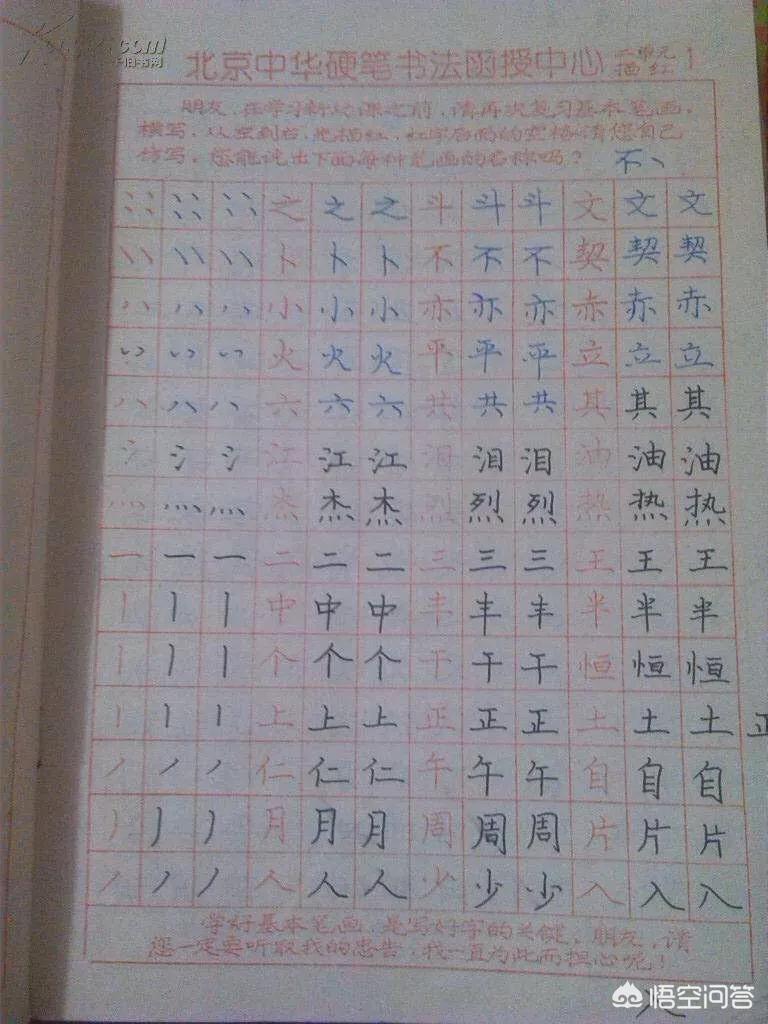 北京中华硬笔书法函授中心 二单元描红 1
朋友,在学习新功课之前,请再次复习基本笔画,
横写,从左到右,先描红,红字后面的空格请您自己
仿写,您能说出下面每种笔画的名称吗?
不丶
之 之 之 斗 斗 斗 文 文 文
卜 卜 卜 不 不 不 契 契 契
小 小 小 亦 亦 亦 赤 赤 赤
火 火 火 平 平 平 立 立 立
六 六 六 共 共 共 其 其 其
氵 氵 氵 江 江 江 泪 泪 泪 油 油 油
灬 灬 灬 杰 杰 杰 烈 烈 烈 热 热 热
一 一 一 二 二 二 三 三 三 王 王 王
丨 丨 丨 中 中 中 丰 丰 丰 半 半 半
丨 丨 丨 个 个 个 干 干 干 恒 恒 恒
丨 丨 丨 上 上 上 正 正 正 土 土 土 正
丿 丿 丿 仁 仁 仁 午 午 午 自 自 自
丿 丿 丿 月 月 月 周 周 周 片 片 片
丿 丿 丿 人 人 人 少 少 少 入 入 入
学好基本笔画,是写好字的关键,朋友,请
您一定要听取我的忠告,我一直为此而担心呢!
悟空问答